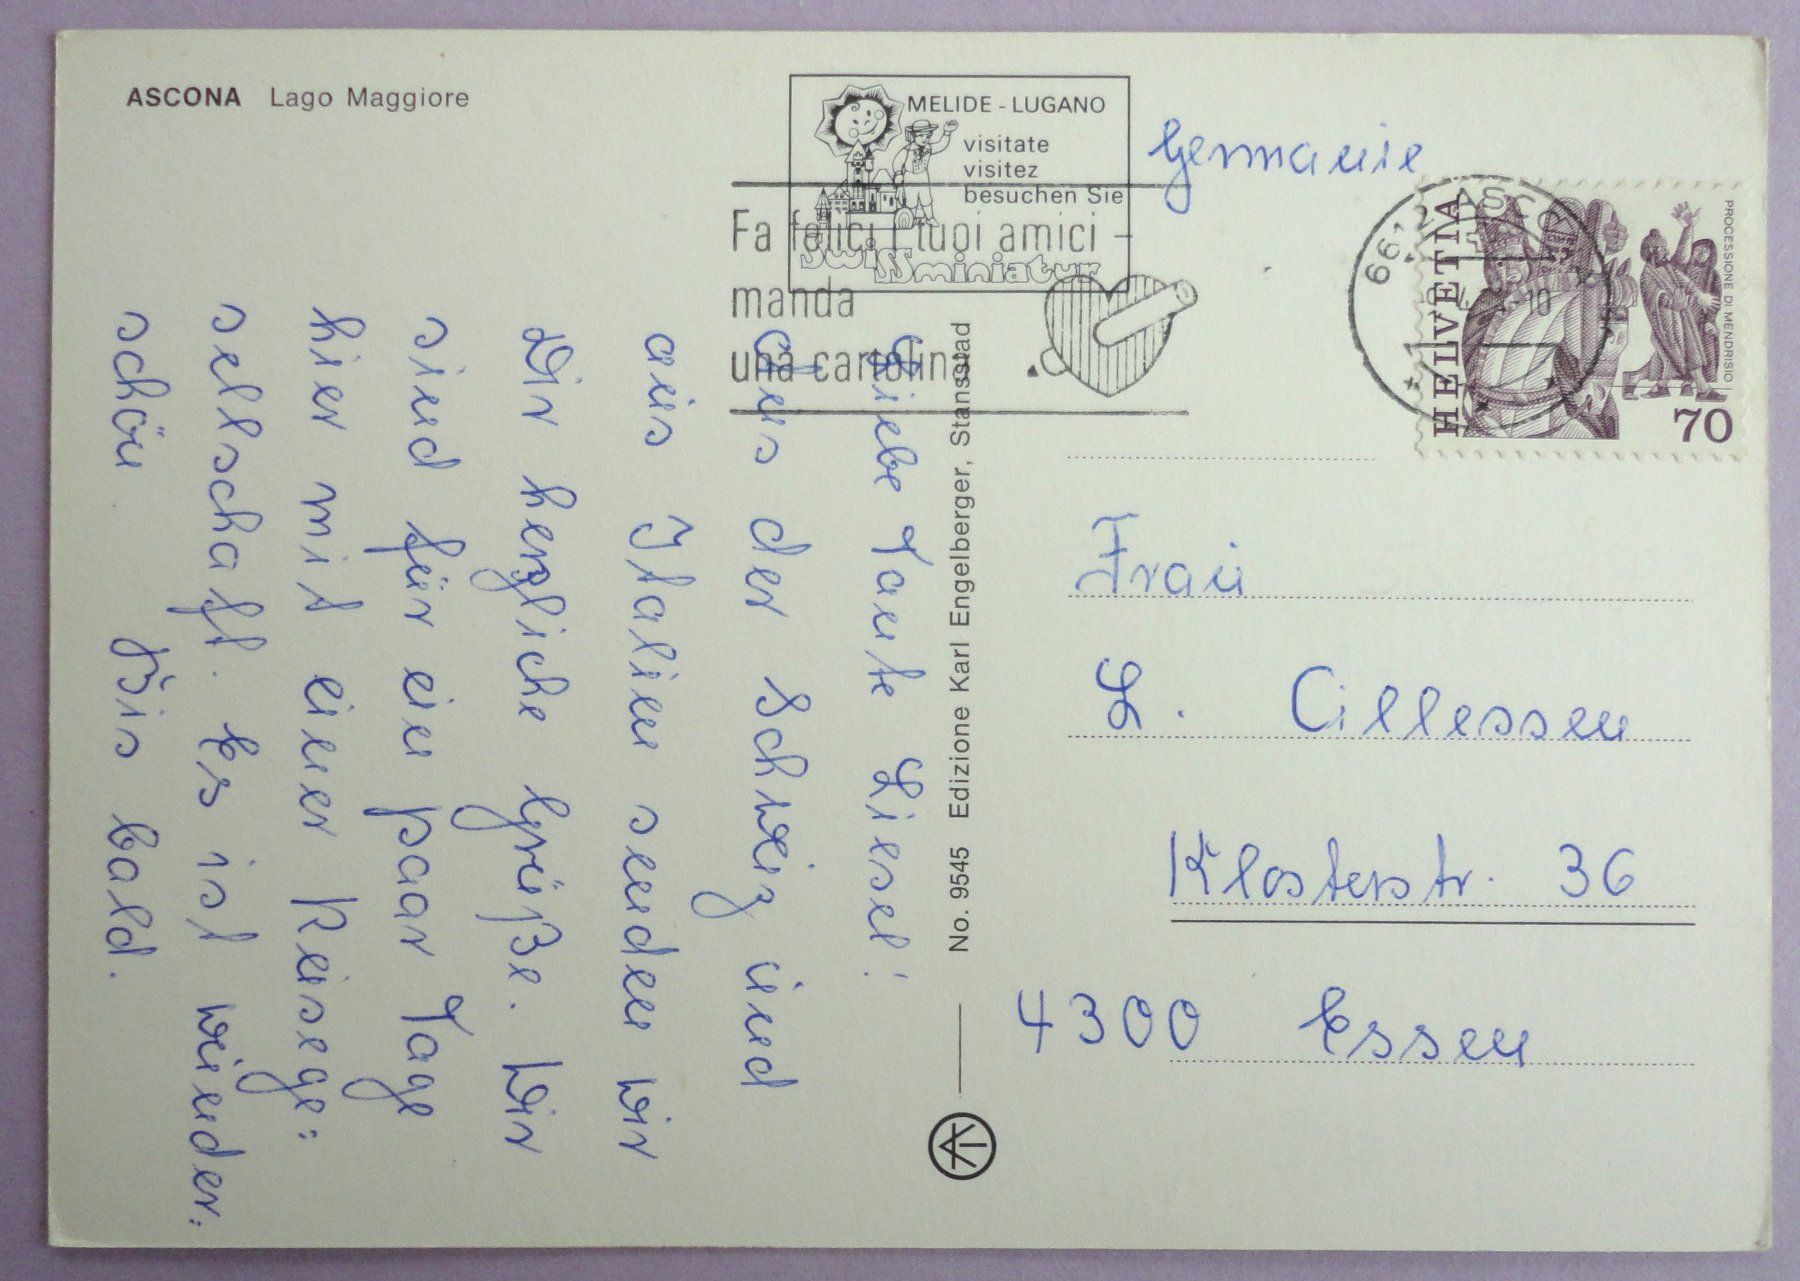 ASCONA Lago Maggiore
MELIDE - LUGANO
visitate
visitez
besuchen Sie
swissminiatur
Fa felici i tuoi amici -
manda
una cartolina
Germanie
6612 ASCO
HELVETIA
PROCESSIONE DI MENDRISIO
70
Liebe Tante Liesel!
Aus der Schweiz und
aus Italien senden wir
Dir herzliche Grüße. Wir
sind für ein paar Tage
hier mit einer Reisege:
sellschaft. Es ist wieder.
schön. Bis bald.
No. 9545 Edizione Karl Engelberger, Stansstad
Frau
L. Cillessen
Klosterstr. 36
4300 Essen